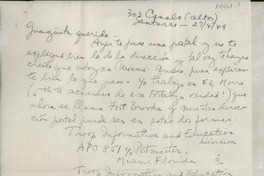 302 Canals (altos)
Santurce - 27/4/49
querida
Ayer te puse una postal y no te
expliqué bien lo de la dirección y tal vez hayas
creído que estoy en Miami. Quiero pues, explicar-
te bien lo que pasa. Yo trabajo en El Morro
(¿te acuerdas de esa fortaleza verdad?) que
ahora se llama Fort Brooke y nuestra direc-
ción postal puede ser en estas dos formas:
Troop Information and Education
Division
APO 851 % Postmaster,
Miami Florida
ó
Troop Information and Education